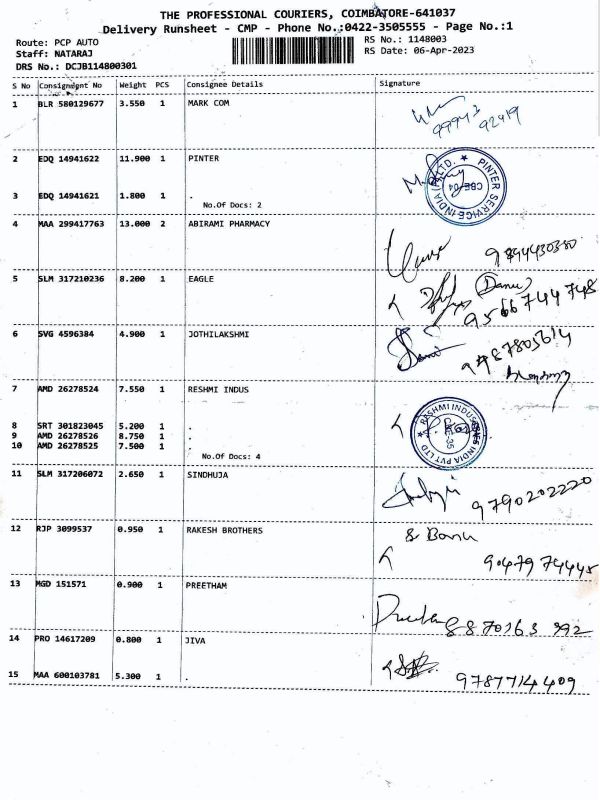 THE PROFESSIONAL COURIERS, COIMBATORE-641037
Delivery Runsheet - CMP - Phone No.:0422-3505555 - Page No.:1
Route: PCP AUTO
RS No.: 1148003
Staff: NATARAJ
RS Date: 06-Apr-2023
DRS No.: DCJB114800301
S No Consignment No Weight PCS Consignee Details Signature
1 BLR 580129677 3.550 1 MARK COM
99943 92419
2 EDQ 14941622 11.900 1 PINTER
PINTER SERVICE INDIA (P) LTD. CBE-04
3 EDQ 14941621 1.800 1 .
No.Of Docs: 2
4 MAA 299417763 13.000 2 ABIRAMI PHARMACY
9894430380
5 SLM 317210236 8.200 1 EAGLE
(Danu)
9566744748
6 SVG 4596384 4.900 1 JOTHILAKSHMI
9787805614
7 AMD 26278524 7.550 1 RESHMI INDUS
RASHMI INDUSTRIES INDIA PVT LTD
8 SRT 301823045 5.200 1 .
9 AMD 26278526 8.750 1 .
10 AMD 26278525 7.500 1 .
No.Of Docs: 4
11 SLM 317206072 2.650 1 SINDHUJA
9790202220
12 RJP 3099537 0.950 1 RAKESH BROTHERS
& Banu
90479 74445
13 MGD 151571 0.900 1 PREETHAM
8870163 992
14 PRO 14617209 0.800 1 JIVA
15 MAA 600103781 5.300 1 .
9787714409